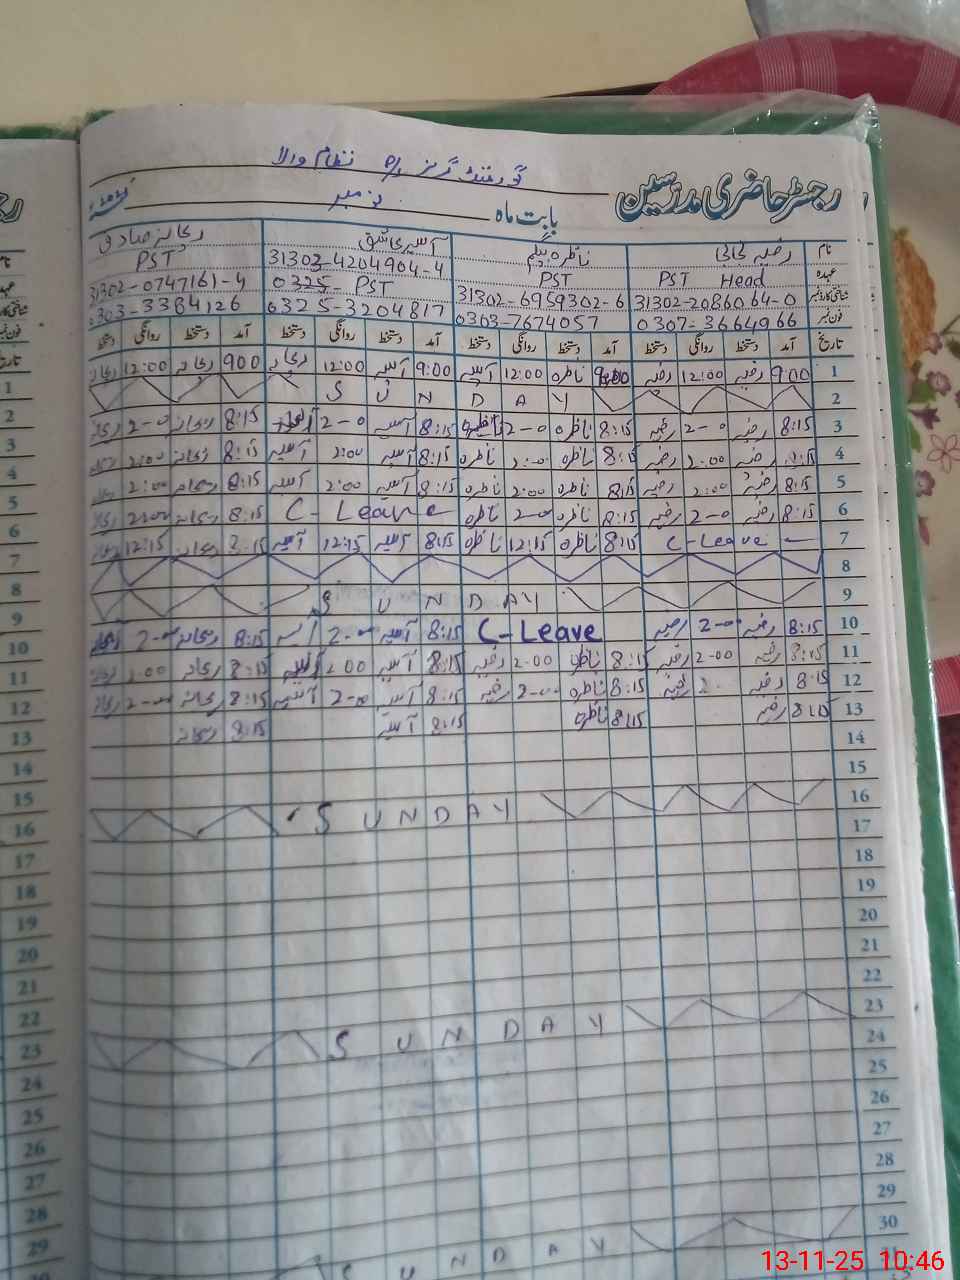 گورنمنٹ گرلز پ/س نظام والا
رجسٹر حاضری مدرسین بابت ماہ نومبر
نام رضیہ ناظرہ بیگم آسیہ عاشق ریحانہ صادق
عہدہ PST Head PST PST
شناختی کارڈ نمبر 31302-2086064-0 31302-6959302-6 0325- PST 31303-4204904-4 31302-0747161-4
فون نمبر 0307-3664966 0303-7674057 0325-3204817 0303-3384126
تاریخ آمد دستخط روانگی دستخط آمد دستخط روانگی دستخط آمد دستخط روانگی دستخط آمد دستخط روانگی دستخط
1 9:00 رضیہ 12:00 رضیہ 9:00 ناظرہ 12:00 آسیہ 9:00 آسیہ 12:00 ریحانہ 900 ریحانہ 12:00 ریحانہ
2 SUNDAY
3 8:15 رضیہ 2-0 رضیہ 8:15 ناظرہ 2-0 ناظرہ 8:15 آسیہ 2-0 آسیہ 8:15 ریحانہ 2-0 ریحانہ
4 8:15 رضیہ 2:00 رضیہ 8:15 ناظرہ 2:00 ناظرہ 8:15 آسیہ 2:00 آسیہ 8:15 ریحانہ 2:00
5 8:15 رضیہ 2:00 رضیہ 8:15 ناظرہ 2:00 ناظرہ 8:15 آسیہ 2:00 آسیہ 8:15 ریحانہ 2:00 ریحانہ
6 8:15 رضیہ 2-0 رضیہ 8:15 ناظرہ 2-0 ناظرہ C-Leave 8:15 ریحانہ 2:00 ریحانہ
7 C-Leave 8:15 ناظرہ 12:15 ناظرہ 8:15 آسیہ 12:15 آسیہ 8:15 ریحانہ 12:15 ریحانہ
8
9 SUNDAY
10 8:15 رضیہ 2-0 رضیہ C-Leave 8:15 آسیہ 2-00 آسیہ 8:15 ریحانہ 2-00 ریحانہ
11 8:15 رضیہ 2-00 رضیہ 8:15 ناظرہ 2-00 رضیہ 8:15 آسیہ 2 00 آسیہ 8:15 ریحانہ 2.00 ریحانہ
12 8:15 رضیہ 2. رضیہ 8:15 ناظرہ 2-00 رضیہ 8:15 آسیہ 2-00 آسیہ 8:15 ریحانہ 2-00 ریحانہ
13 8:15 رضیہ 8:15 ناظرہ 8:15 آسیہ 8:15 ریحانہ
14
15
16 SUNDAY
17
18
19
20
21
22
23 SUNDAY
24
25
26
27
28
29
30 SUNDAY
31
1
2
3
4
5
6
7
8
9
10
11
12
13
14
15
16
17
18
19
20
21
22
23
24
25
26
27
28
29
13-11-25 10:46